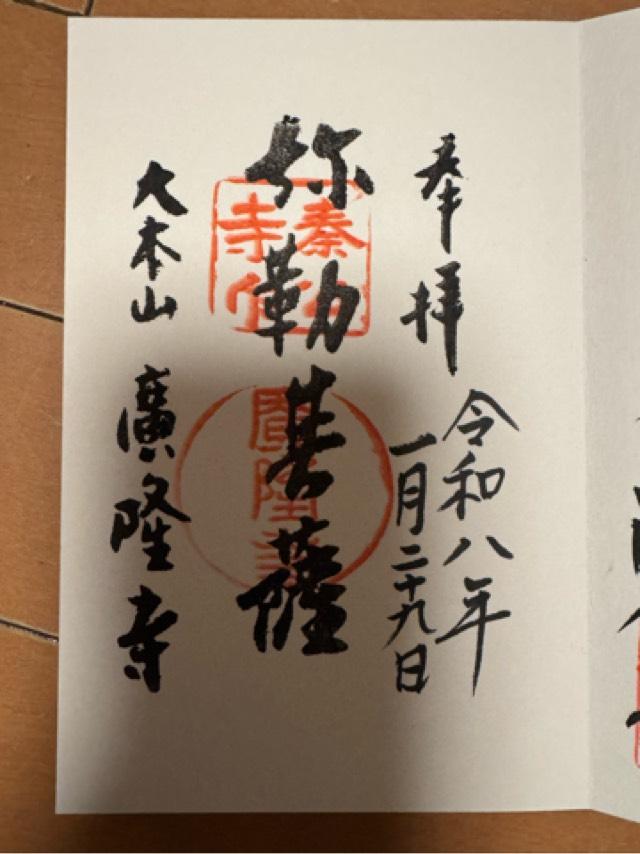 奉拝
令和八年
一月二十九日
弥勒菩薩
大本山 廣隆寺